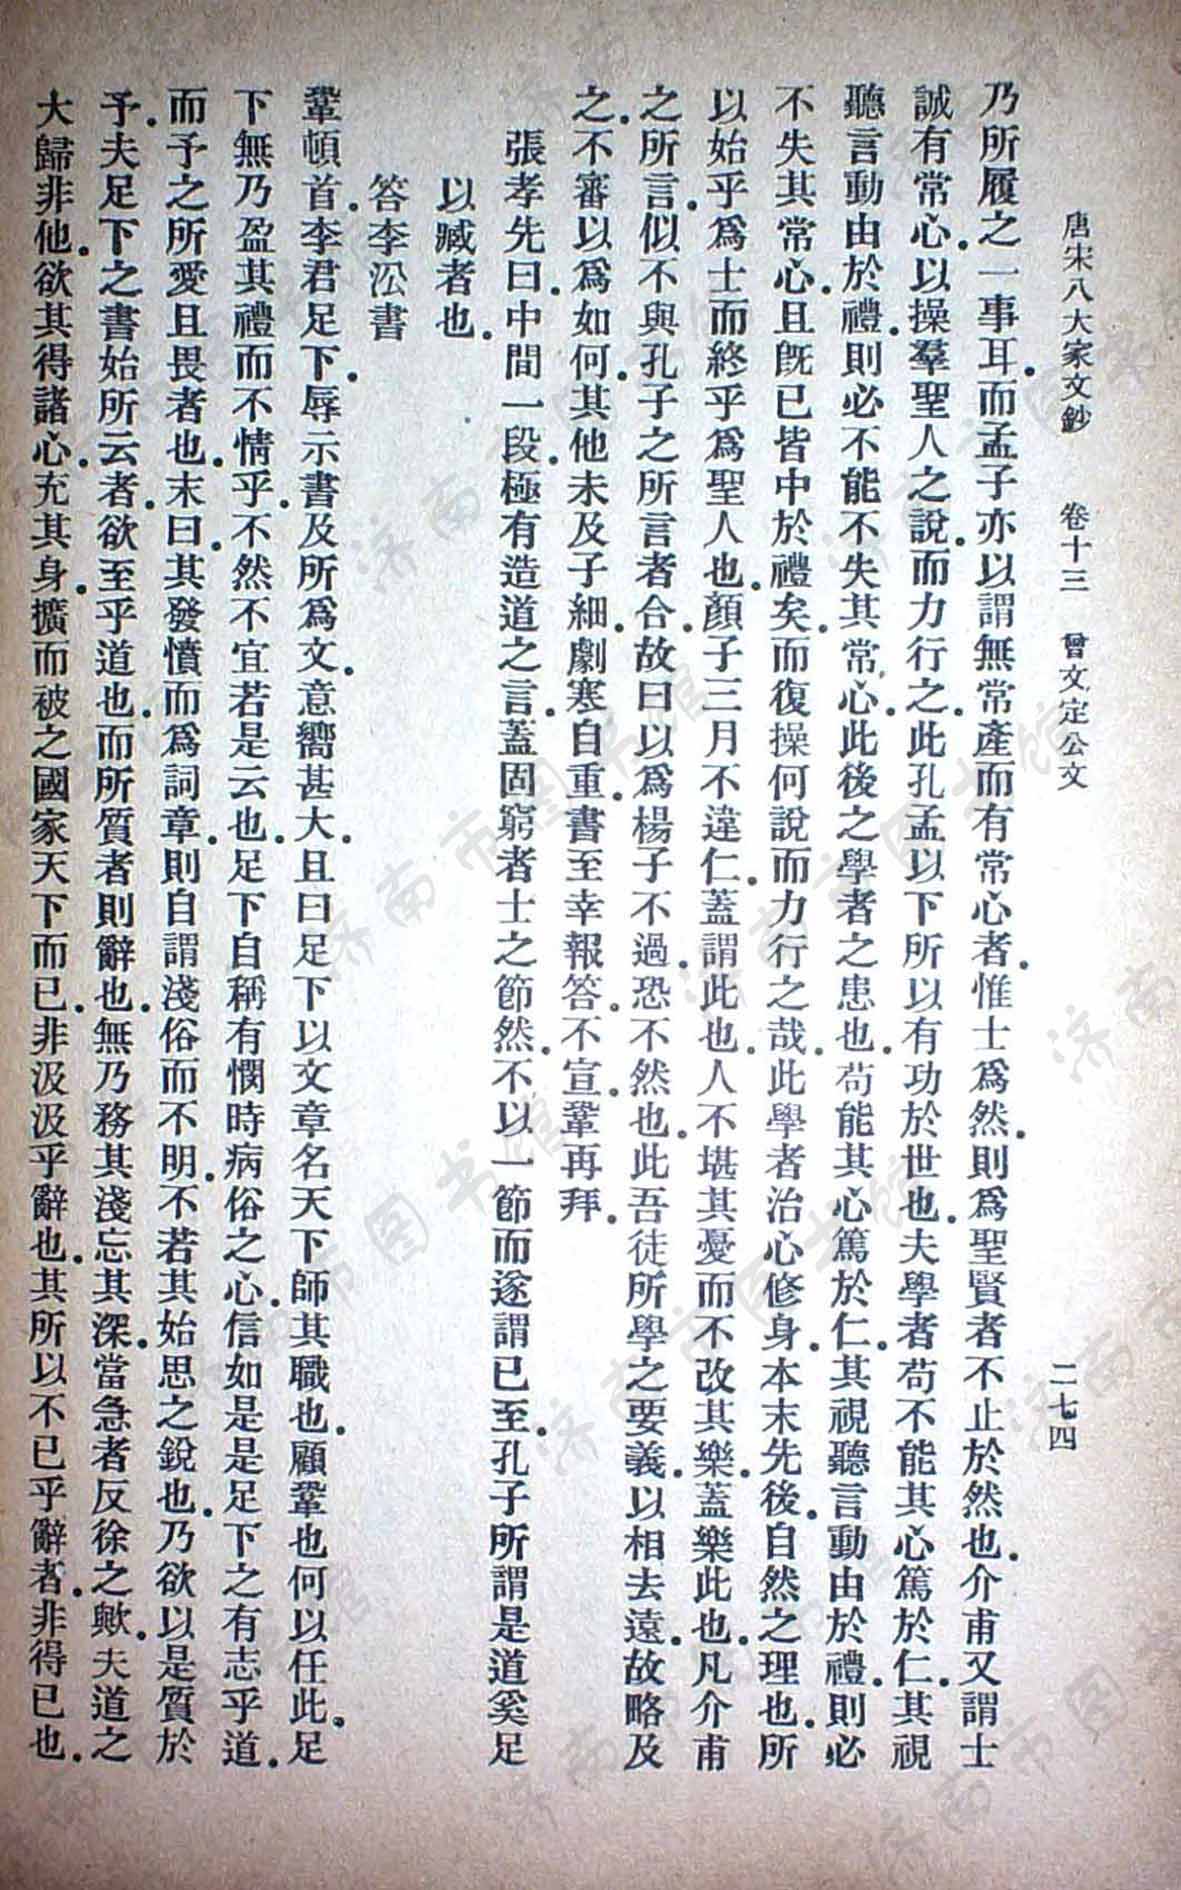 唐宋八大家文鈔　卷十三　曾文定公文　二七四
乃所履之一事耳．而孟子亦以謂無常產而有常心者．惟士爲然．則爲聖賢者不止於然也．介甫又謂士
誠有常心．以操羣聖人之說．而力行之．此孔孟以下所以有功於世也．夫學者苟不能其心篤於仁．其視
聽言動由於禮．則必不能不失其常心．此後之學者之患也．苟能其心篤於仁．其視聽言動由於禮．則必
不失其常心．且既已皆中於禮矣．而復操何說而力行之哉．此學者治心修身．本末先後．自然之理也．所
以始乎爲士而終乎爲聖人也．顏子三月不違仁．蓋謂此也．人不堪其憂而不改其樂．蓋樂此也．凡介甫
之所言．似不與孔子之所言者合．故曰以爲楊子不過．恐不然也．此吾徒所學之要義．以相去遠．故略及
之．不審以爲如何．其他未及子細．劇寒自重．書至幸報答．不宣．鞏再拜．
張孝先曰．中間一段．極有造道之言．蓋固窮者士之節然．不以一節而遂謂已至．孔子所謂是道奚足
以臧者也．
答李沿書
鞏頓首．李君足下．辱示書及所爲文．意嚮甚大．且曰足下以文章名天下．師其職也．顧鞏也何以任此．足
下無乃盈其禮而不情乎．不然不宜若是云也．足下自稱有憫時病俗之心．信如是．是足下之有志乎道．
而予之所愛且畏者也．末曰．其發憤而爲詞章．則自謂淺俗而不明．不若其始思之銳也．乃欲以是質於
予．夫足下之書．始所云者．欲至乎道也．而所質者則辭也．無乃務其淺．忘其深．當急者反徐之歟．夫道之
大歸非他．欲其得諸心．充其身．擴而被之國家天下而已．非汲汲乎辭也．其所以不已乎辭者．非得已也．